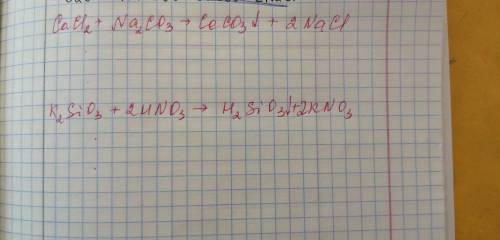 CaCl₂ + Na₂CO₃ → CaCO₃↓ + 2NaCl
K₂SiO₃ + 2HNO₃ → H₂SiO₃↓ + 2KNO₃